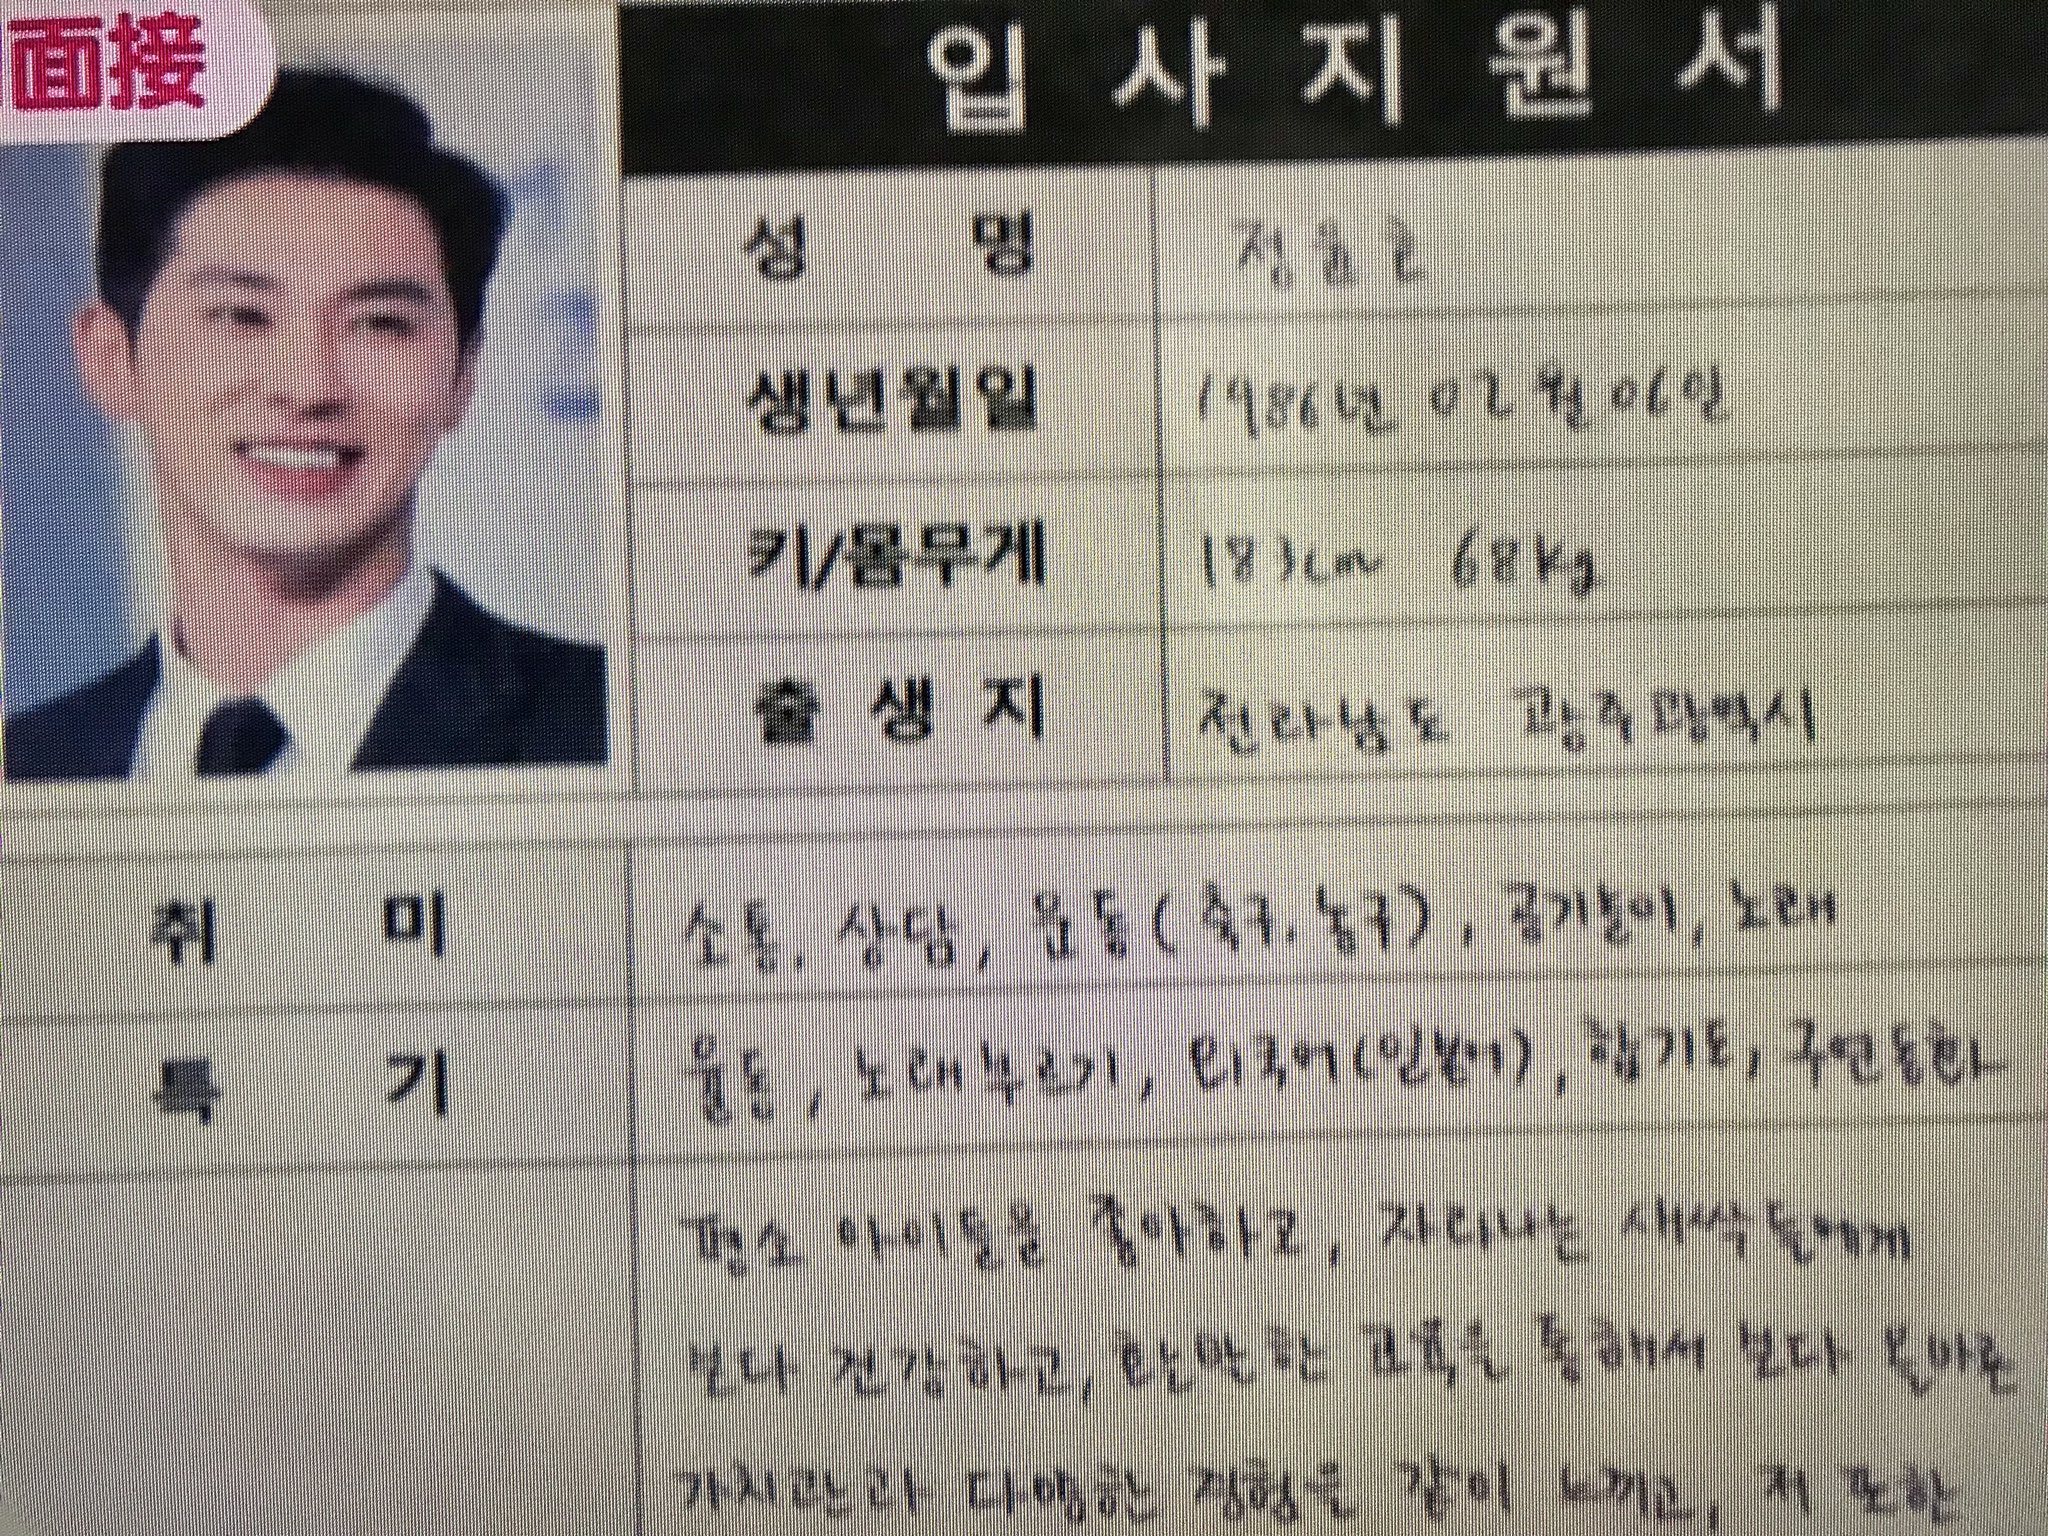 面接
입사지원서
성 명 정윤호
생년월일 1986년 02월 06일
키/몸무게 183cm 68kg
출생지 전라남도 광주광역시
취 미 소통, 상담, 운동(축구, 농구), 공기놀이, 노래
특 기 운동, 노래부르기, 외국어(일본어), 합기도,
평소 아이들을 좋아하고, 자라나는 새싹들에게
보다 건강하고, 탄탄한 교육을 통해서 보다 올바른
가치관과 다양한 경험을 같이 느끼고, 저 또한